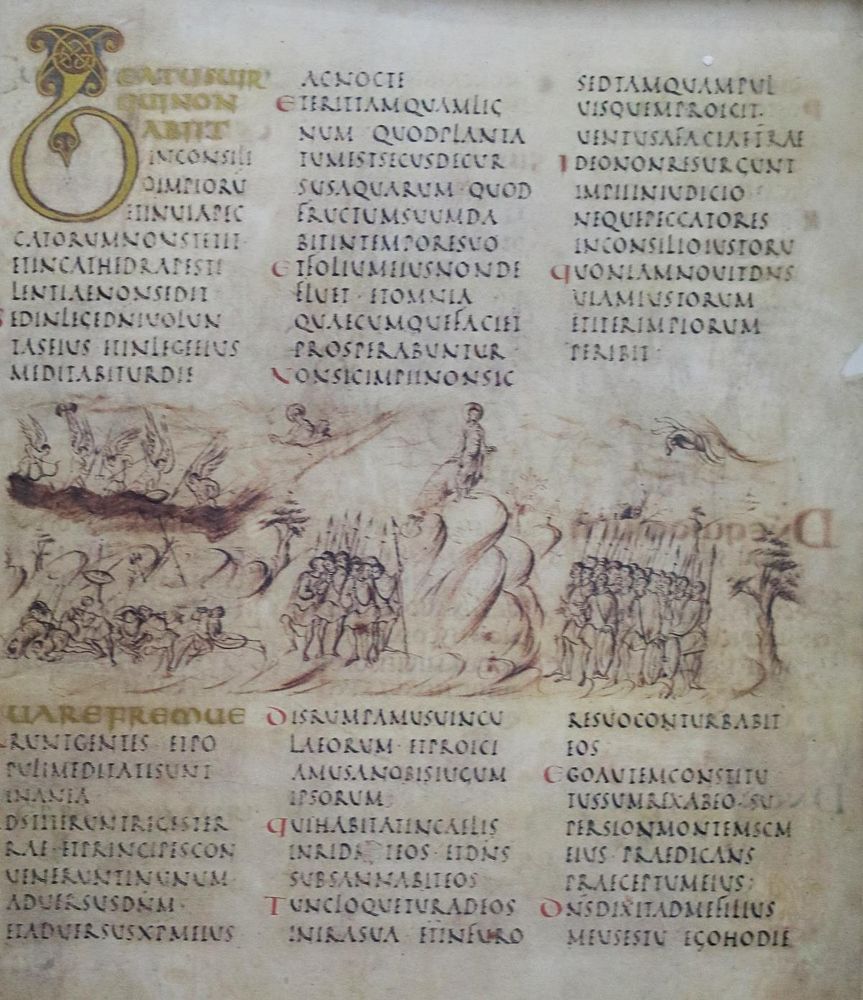 BEATUSUIR
QUINON
ABIIT
INCONSILI
OIMPIORU
ETINUIAPEC
CATORUMNONSTETIT·
ETINCATHEDRAPESTI
LENTIAENONSEDIT
SEDINLEGEDNIUOLUN
TASEIUS ETINLEGEEIUS
MEDITABITURDIE
ACNOCTE
ETERITTAMQUAMLIG
NUM QUODPLANTA
TUMESTSECUSDECUR
SUSAQUARUM· QUOD
FRUCTUMSUUMDA
BITINTEMPORESUO
ETFOLIUMEIUSNONDE
FLUET· ETOMNIA
QUAECUMQUEFACIET
PROSPERABUNTUR·
NONSICIMPIINONSIC
SEDTAMQUAMPUL
UISQUEMPROICIT·
UENTUSAFACIAETRAE
IDEONONRESURGUNT
IMPIIINIUDICIO
NEQUEPECCATORES
INCONSILIOIUSTORU
QUONIAMNOUITDNS
UIAMIUSTORUM
ETITERIMPIORUM
PERIBIT·
UAREFREMUE
RUNTGENTES· ETPO
PULIMEDITATISUNT
INANIA·
DSTITERUNTREGESTER
RAE· ETPRINCIPESCON
UENERUNTINUNUM·
ADUERSUSDNM·
ETADUERSUSXPMEIUS
DISRUMPAMUSUINCU
LAEORUM· ETPROICI
AMUSANOBISIUGUM
IPSORUM;
QUIHABITATINCAELIS
INRIDEBITEOS· ETDNS
SUBSANNABITEOS·
TUNCLOQUETURADEOS
INIRASUA· ETINFURO
RESUOCONTURBABIT
EOS·
EGOAUTEMCONSTITU
TUSSUMREXABEO· SU
PERSIONMONTEMSCM
EIUS· PRAEDICANS
PRAECEPTUMEIUS;
DNSDIXITADMEFILIUS
MEUSESTU EGOHODIE